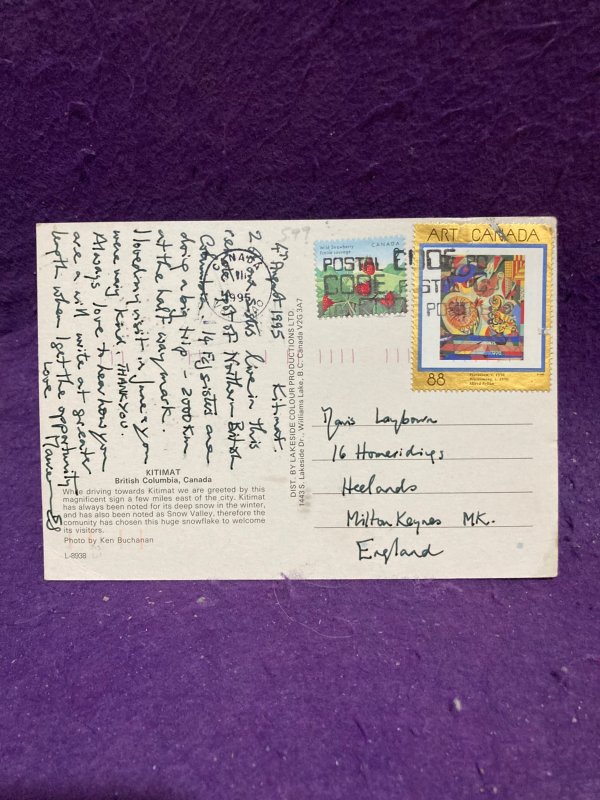 4th August 1995 Kitimat.
2 of our sisters live in this
remote spot of Northern British
Columbia. 14 FCJ sisters are
doing a big trip - 2000 km
at the half way mark.
I loved my visit in June & you
were very kind - THANK YOU.
Always love to hear how you
are. Will write at greater
length when I get the opportunity
Love Maureen
KITIMAT
British Columbia, Canada
While driving towards Kitimat we are greeted by this
magnificent sign a few miles east of the city. Kitimat
has always been noted for its deep snow in the winter,
and has also been noted as Snow Valley, therefore the
comunity has chosen this huge snowflake to welcome
its visitors.
Photo by Ken Buchanan
L-8938
DIST. BY LAKESIDE COLOUR PRODUCTIONS LTD.
1443 S. Lakeside Dr., Williams Lake, B.C. Canada V2G 3A7
CANADA
1995
Wild Strawberry CANADA
Fraise sauvage
POSTAL CODE
CODE POSTAL
ART CANADA
88
Mavis Laybourn
16 Homeridings
Heelands
Milton Keynes MK.
England